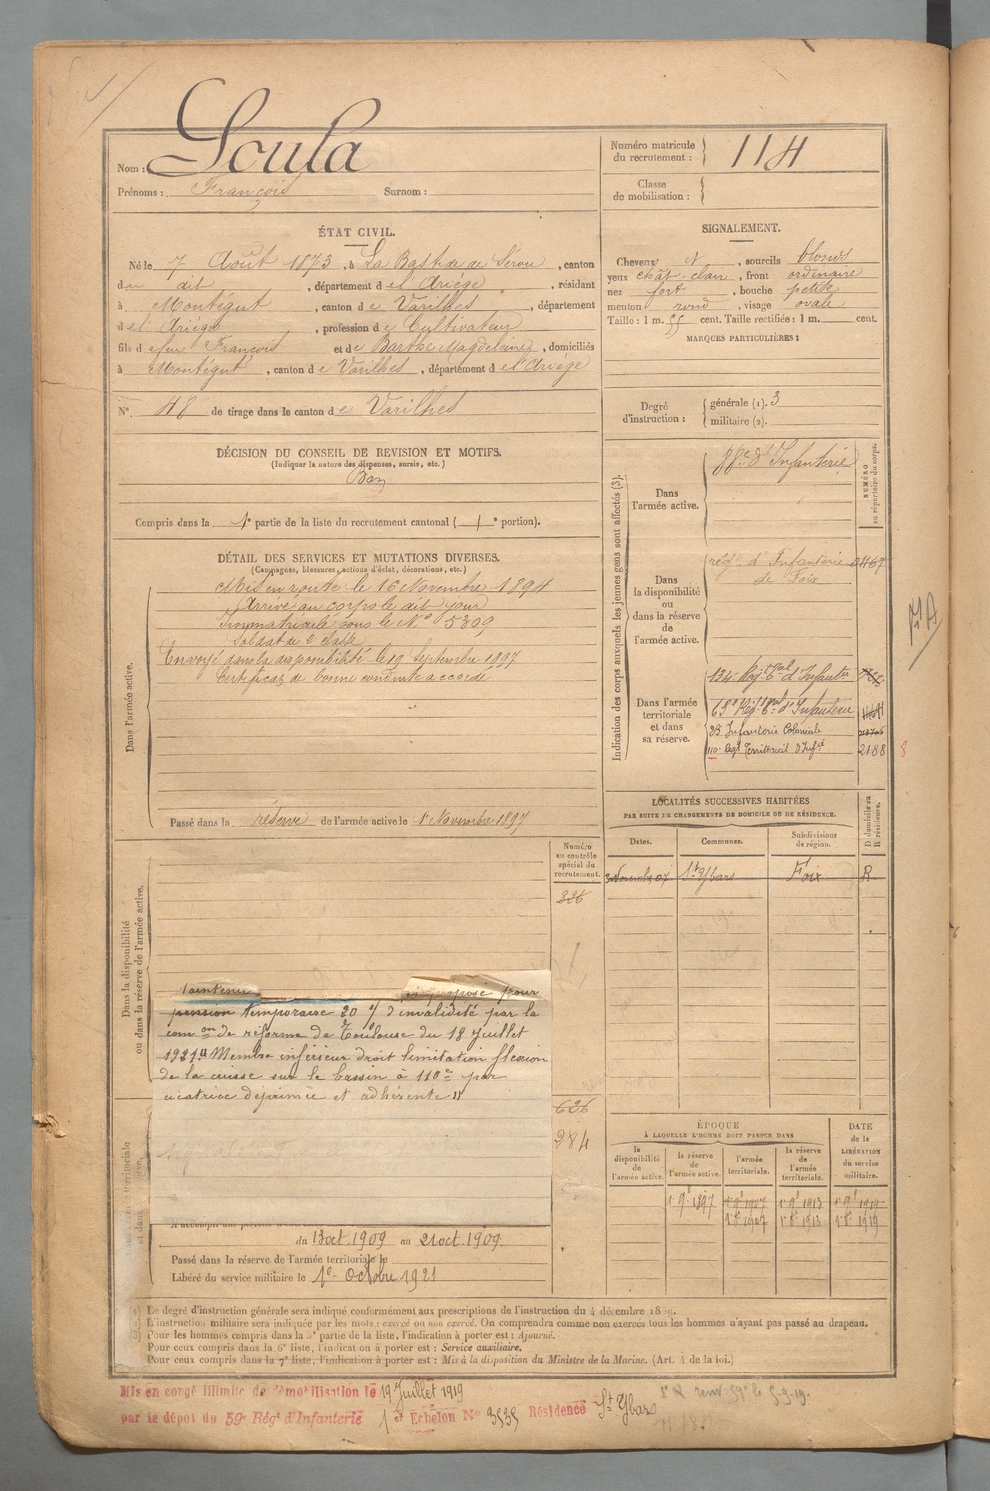 Nom : Soula
Prénoms : François Surnom :
Numéro matricule du recrutement : 114
Classe de mobilisation :
ÉTAT CIVIL.
Né le 7 Août 1873, à La Bastide de Sérou, canton
du dit, département de l'Ariège, résidant
à Montégut, canton de Varilhes, département
de l'Ariège, profession de Cultivateur
fils de feu François et de Barthe Magdeleine, domiciliés
à Montégut, canton de Varilhes, département de l'Ariège
N° 48 de tirage dans le canton de Varilhes
SIGNALEMENT.
Cheveux N, sourcils blonds
yeux chât-clair, front ordinaire
nez fort, bouche petite
menton rond, visage ovale
Taille : 1 m. 55 cent. Taille rectifiée : 1 m. cent.
MARQUES PARTICULIÈRES :
Degré d'instruction : générale (1). 3
militaire (2).
DÉCISION DU CONSEIL DE REVISION ET MOTIFS.
(Indiquer la nature des dispenses, sursis, etc.)
Bon
Compris dans la 1e partie de la liste du recrutement cantonal ( portion).
DÉTAIL DES SERVICES ET MUTATIONS DIVERSES.
(Campagnes, blessures, actions d'éclat, décorations, etc.)
Dans l'armée active.
Mis en route le 16 Novembre 1894
Arrivé au corps le dit jour
Immatriculé sous le N° 5309
Soldat de 2e classe
Envoyé dans la disponibilité le 19 Septembre 1897
Certificat de bonne conduite accordé
Passé dans la réserve de l'armée active le 1er Novembre 1897
Indication des corps auxquels les jeunes gens sont affectés (3).
NUMÉRO au répertoire du corps.
Dans l'armée active.
88e d'Infanterie
Dans la disponibilité ou dans la réserve de l'armée active.
régt. d'Infanterie de Foix
Dans l'armée territoriale et dans sa réserve.
134e Régt. Tal d'Infante
Infanterie Coloniale
110e Régt Territorial d'Infie 2188
LOCALITÉS SUCCESSIVES HABITÉES
PAR SUITE DE CHANGEMENTS DE DOMICILE OU DE RÉSIDENCE.
Dates. Communes. Subdivisions de région. D domicile ou R résidence.
St Ybars Foix R.
Dans la disponibilité ou dans la réserve de l'armée active.
Numéro au contrôle spécial du recrutement.
336
proposé pour
pension temporaire 20 % d'invalidité par la
comon de réforme de Toulouse du 18 Juillet
1921 "Membre inférieur droit limitation flexion
de la cuisse sur le bassin à 110° par
cicatrice déprimée et adhérente "
626
284
du 13 oct 1909 au 21 oct 1909.
Passé dans la réserve de l'armée territoriale le
Libéré du service militaire le 1er Octobre 1921
ÉPOQUE
À LAQUELLE L'HOMME DOIT PASSER DANS
la disponibilité de l'armée active. la réserve de l'armée active. l'armée territoriale. la réserve de l'armée territoriale.
DATE de la LIBÉRATION du service militaire.
1er 9e 1897
Le degré d'instruction générale sera indiqué conformément aux prescriptions de l'instruction du 4 décembre 1889.
L'instruction militaire sera indiquée par les mots : exercé ou non exercé. On comprendra comme non exercés tous les hommes n'ayant pas passé au drapeau.
Pour les hommes compris dans la 5e partie de la liste, l'indication à porter est : Ajourné.
Pour ceux compris dans la 6e liste, l'indication à porter est : Service auxiliaire.
Pour ceux compris dans la 7e liste, l'indication à porter est : Mis à la disposition du Ministre de la Marine. (Art. 4 de la loi.)
Mis en congé illimité de démobilisation le 19 Juillet 1919
par le dépôt du 59e Régt d'Infanterie 1er Echelon N° 3535 Résidence St Ybars